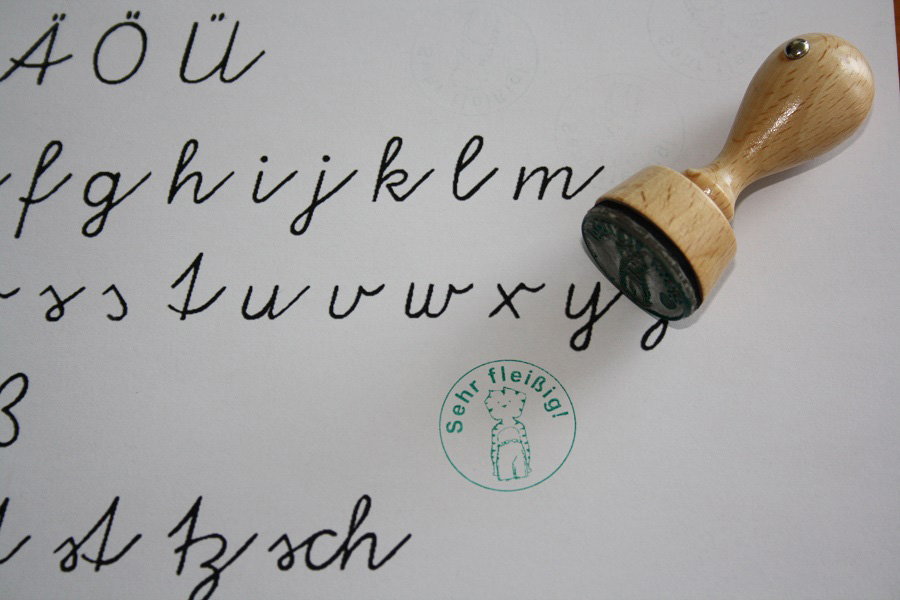 Ä Ö Ü
f g h i j k l m
s s t u v w x y
ß
st tz sch
Sehr fleißig!